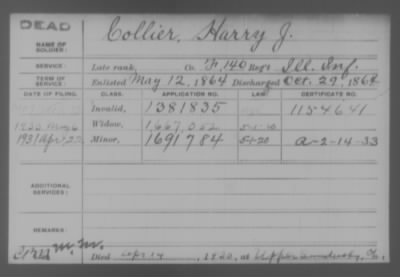 DEAD
Collier, Harry J.
NAME OF
SOLDIER:
SERVICE: Late rank, Co. F, 140 Reg't Ill. Inf.
TERM OF
SERVICE: Enlisted May 12, 1864 Discharged Oct. 29, 1864
DATE OF FILING. CLASS. APPLICATION NO. LAW. CERTIFICATE NO.
Invalid, 1381835 1154641
1920 May 6 Widow, 1,667,052 5-1-20
1931 Apr 22 Minor, 1691784 5-1-20 A-2-14-33
ADDITIONAL
SERVICES:
REMARKS:
Died Apr 14, 1920, at Upper Sandusky, O.